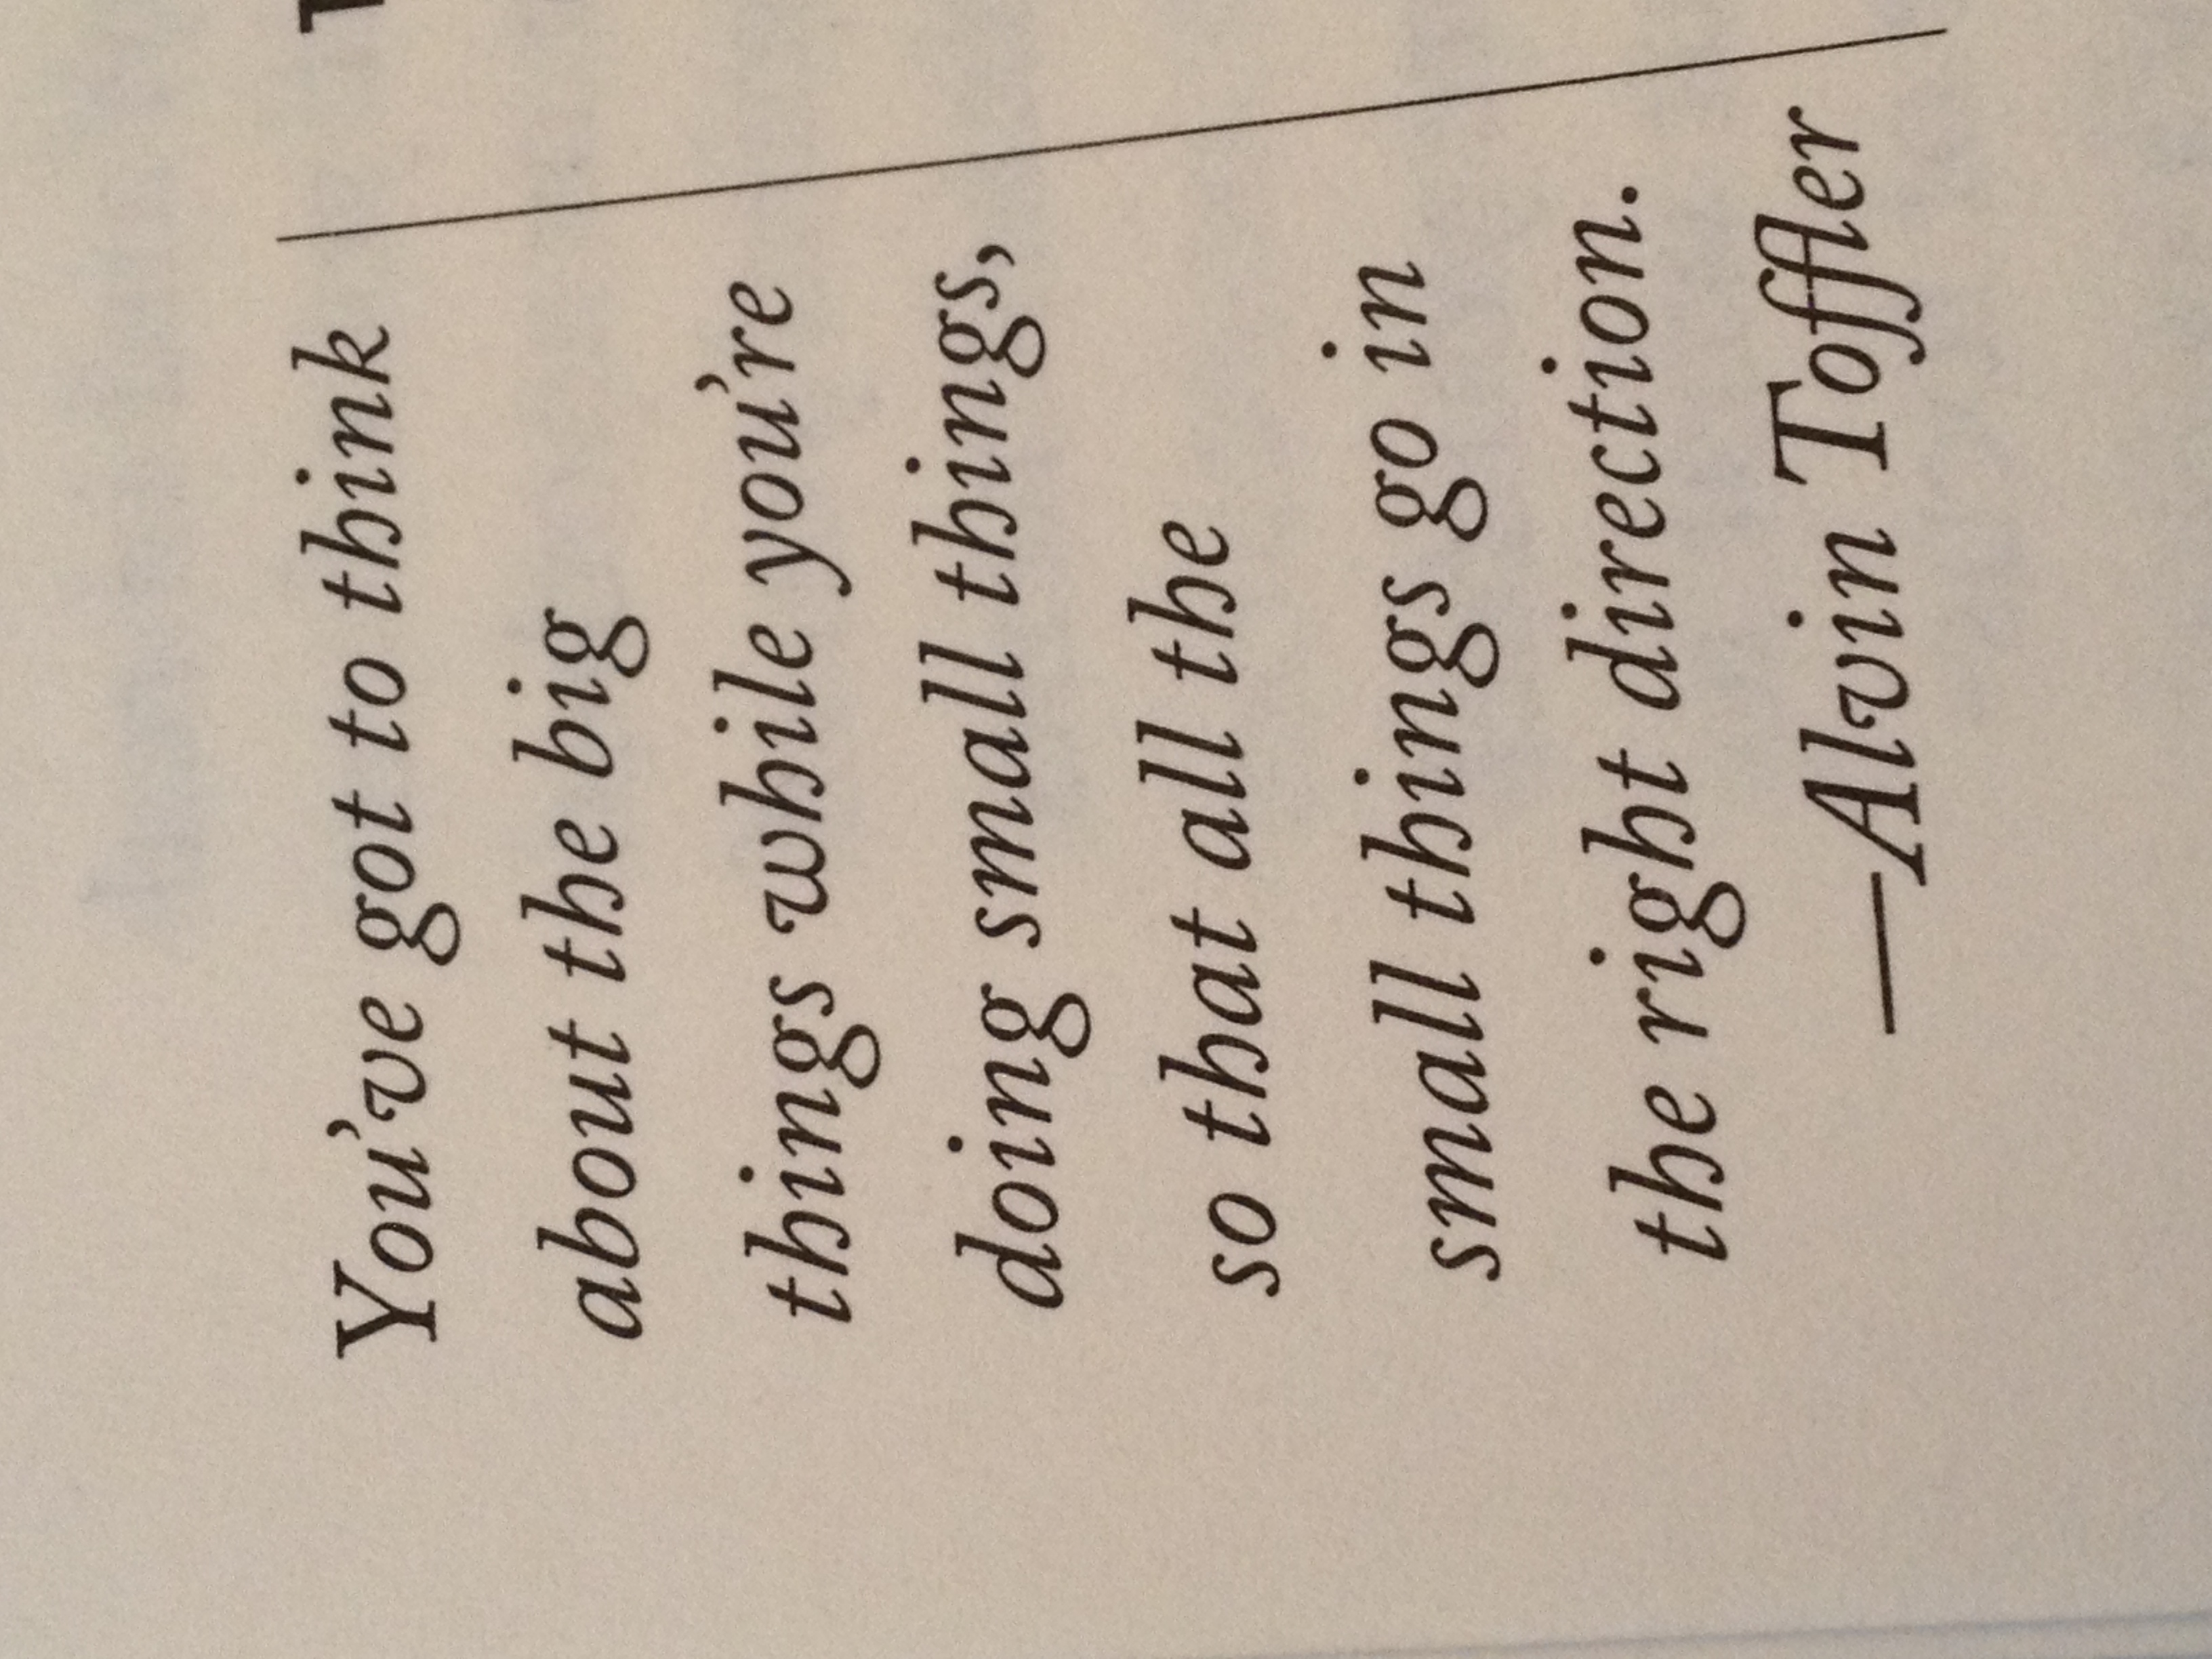 You've got to think
about the big
things while you're
doing small things,
so that all the
small things go in
the right direction.
—Alvin Toffler